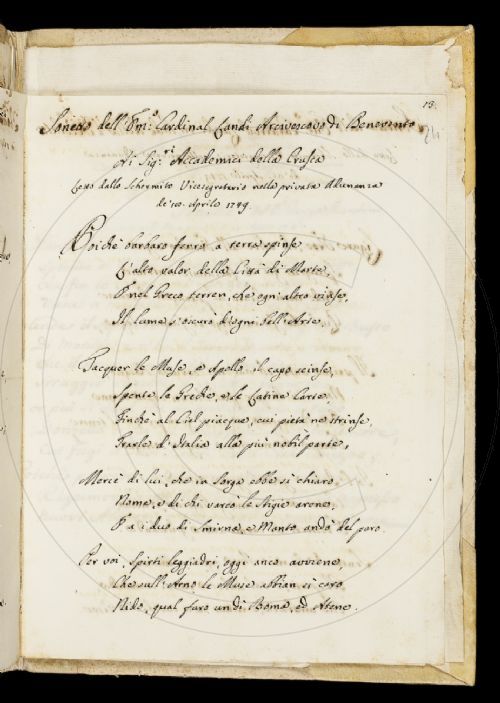 13.
Sonetto dell' Em.º Cardinal Landi Arcivescovo di Benevento
Ai Sig.ri Accademici della Crusca
Letto dallo Schermito Vicesegretario nella privata Adunanza
de' 10. Aprile 1749.
Poichè barbaro ferro a terra spinse
L'alto valor della Città di Marte,
E nel Greco terren, che ogn' altro vinse,
Il lume s' oscurò d'ogni bell' Arte.
Tacquer le Muse, e Apollo il capo scinse,
Spente le Greche, e le Latine Carte.
Finchè al Ciel piacque, cui pietà ne strinse,
Trarle d'Italia alla più nobil parte,
Mercè di lui, che in Sorga ebbe sì chiaro
Nome, e di chi varcò le Stigie arene,
E a i duo di Smirna, e Manto andò del paro.
Per voi Spirti leggiadri, oggi anco avviene,
Che sull' Arno le Muse abbian sì caro
Nido, qual furo un dì Roma, ed Atene.